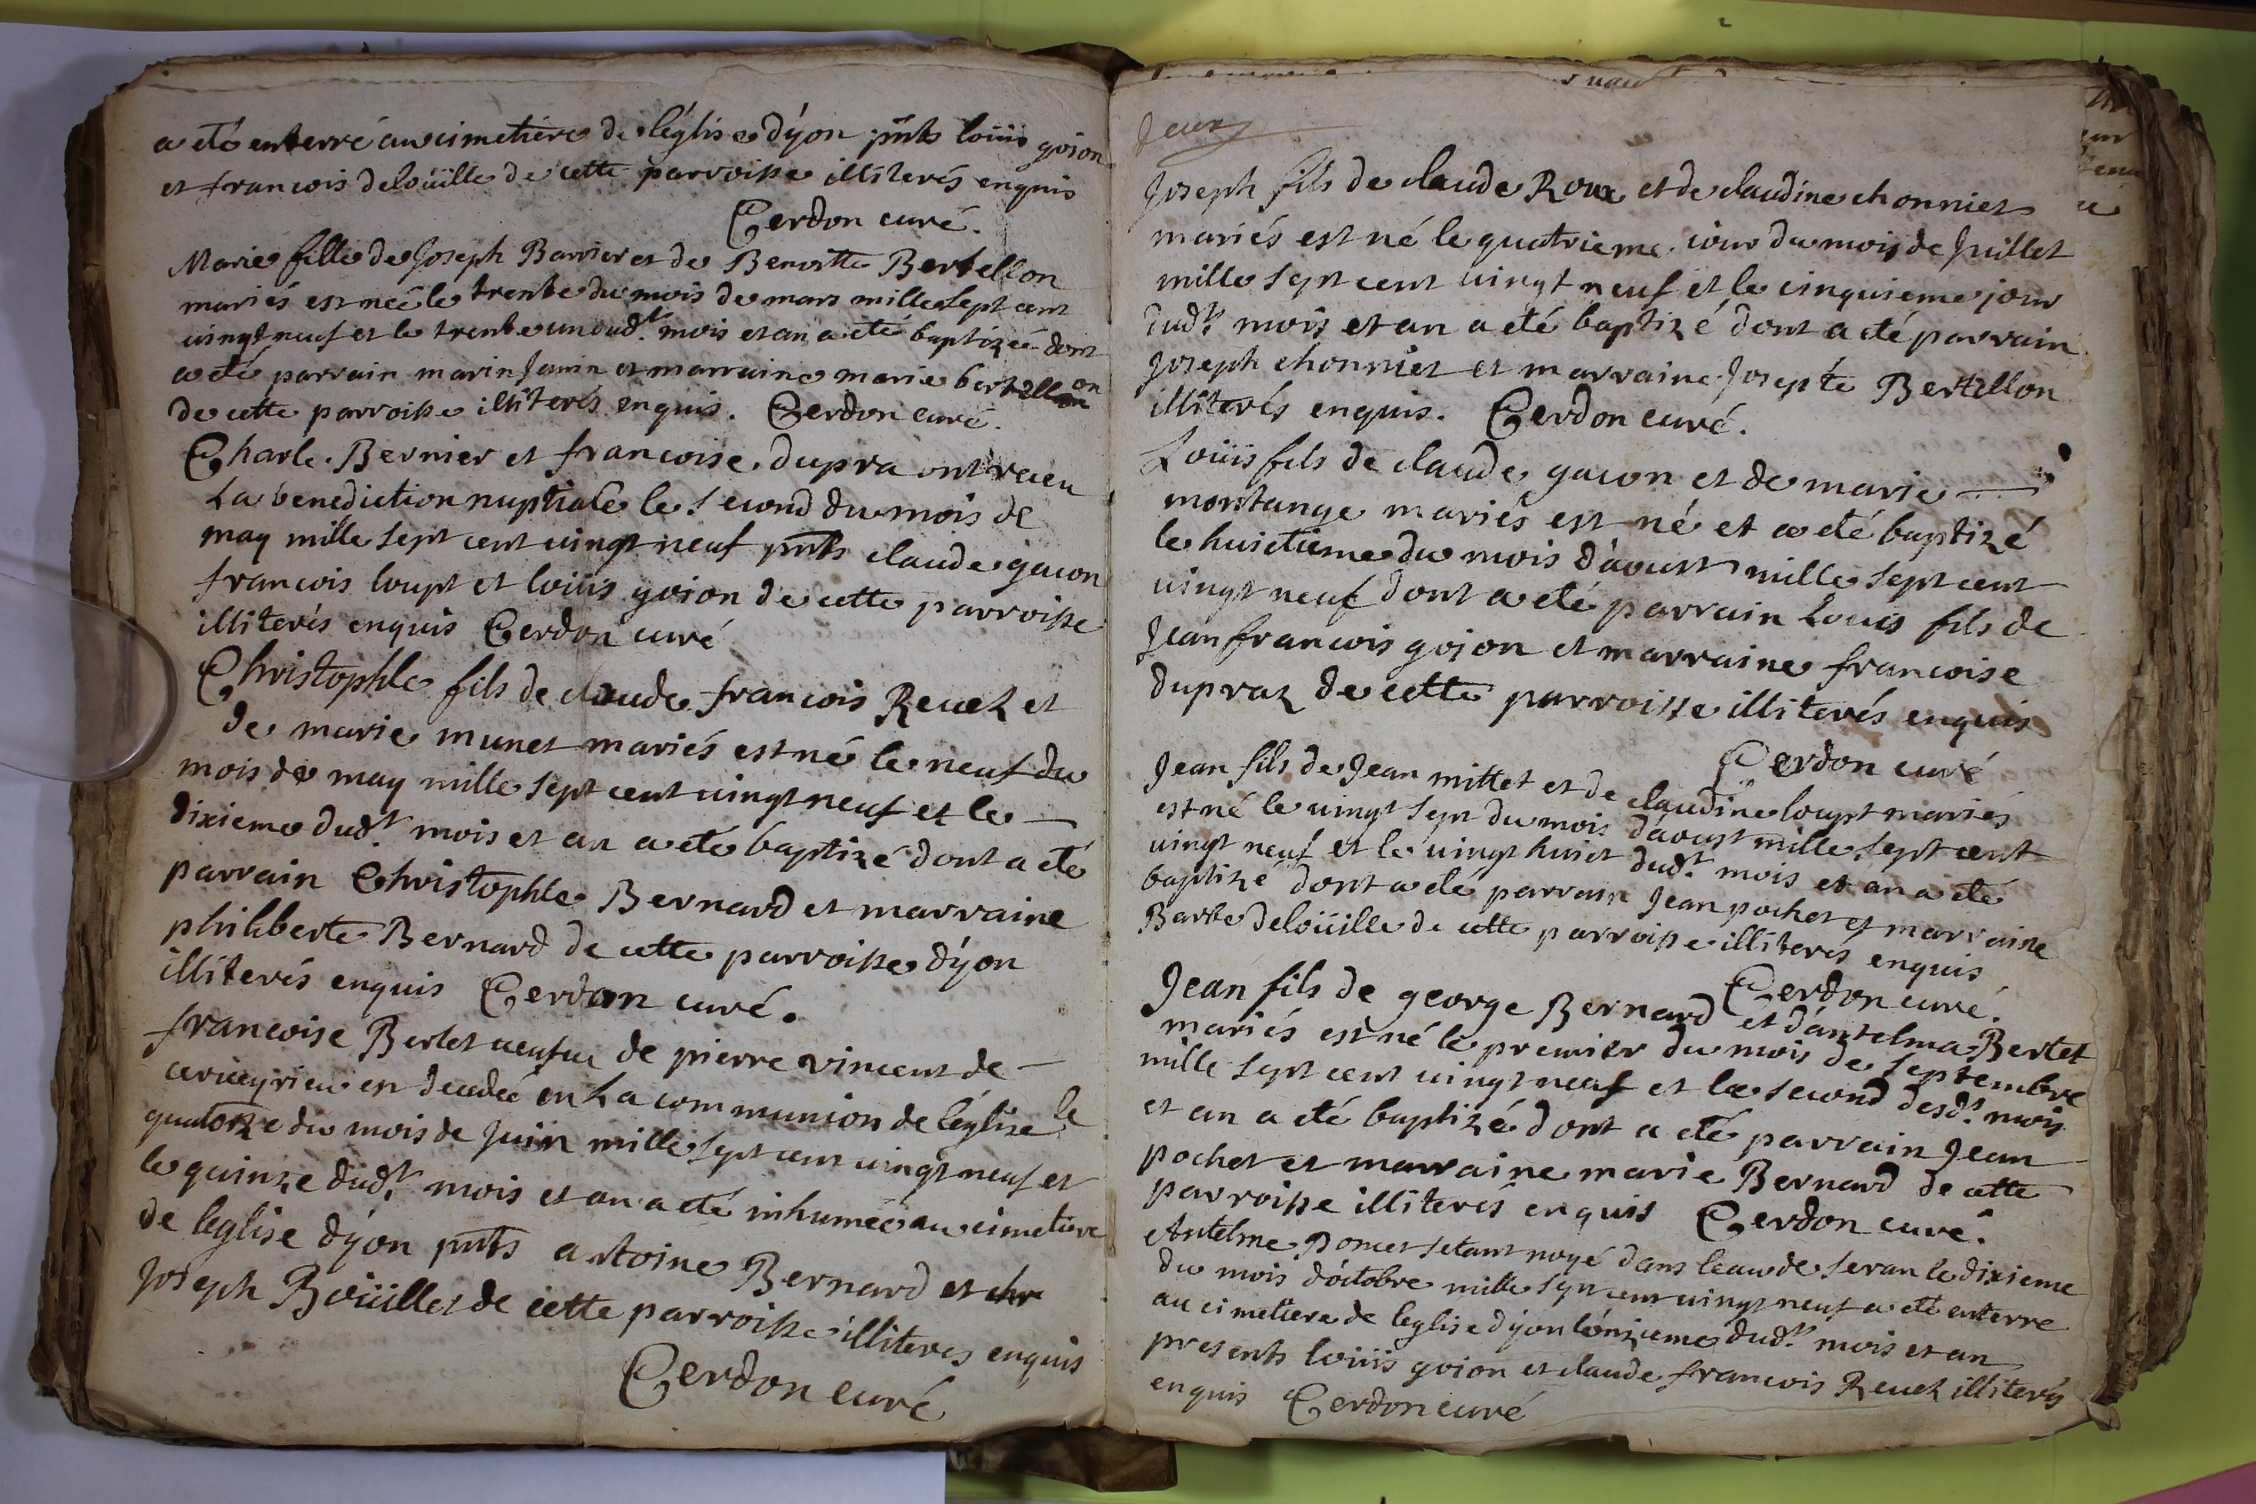 a eté enterré au cimetiere de léglise d'ýon pnts loüis gojon
et francois deloüille de cette parroisse illiterés enquis
Cerdon curé.
Marie fille de Joseph Barrier et de Benoitte Bertellon
mariés est neé le trente du mois de mars mille sept cent
vingt neuf et le trente un dudt. mois et an a eté baptizeé dont
a eté parrain marin Janin et marraine marie bertellon
de cette parroisse illiterés enquis. Cerdon curé.
Charle Bernier et francoise dupra ont receu
La benediction nuptiale le second du mois de
may mille sept cent vingt neuf pnts claude gacon
francois loupt et loüis gojon de cette parroisse
illiterés enquis Cerdon curé
Christophle fils de claude francois Reuez et
de marie munet mariés est né le neuf du
mois de may mille sept cent vingt neuf et le
dixieme dudt. mois et an a eté baptizé dont a eté
parrain Christophle Bernard et marraine
philiberte Bernard de cette parroisse d'ýon
illiterés enquis Cerdon curé.
francoise Berlet veufue de pierre vincent de
cerueyrieu est decedeé en La communion de léglise le
quatorze du mois de Juin mille sept cent vingt neuf et
le quinze dudt. mois et an a eté inhumeé au cimetiere
de leglise d'ýon pnts antoine Bernard et
Joseph Boüillet de cette parroisse illiteres enquis
Cerdon curé
Joseph fils de claude Roux et de claudine chonniet
mariés est né le quatrieme jour du mois de Juillet
mille sept cent vingt neuf et le cinquieme jour
dudt. mois et an a eté baptizé dont a eté parrain
Joseph chonniet et marraine Josepte Bertellon
illiterés enquis. Cerdon curé.
Loüis fils de claude gacon et de marie
montange mariés est né et a eté baptizé
le huictieme du mois d'aoust mille sept cent
vingt neuf dont a eté parrain Louis fils de
Jean francois gojon et marraine francoise
dupraz de cette parroisse illiterés enquis
Cerdon curé
Jean fils de Jean millet et de claudine loupt mariés
est né le vingt sept du mois d'aoust mille sept cent
vingt neuf et le vingt huict dudt. mois et an a eté
baptizé dont a eté parrain Jean pochet et marraine
Barbe deloüille de cette parroisse illiterés enquis
Cerdon curé.
Jean fils de george Bernard et d'antelma Bertet
mariés est né le premier du mois de septembre
mille sept cent vingt neuf et le second desdt. mois
et an a eté baptizé dont a eté parrain Jean
pochet et marraine marie Bernard de cette
parroisse illiterés enquis Cerdon curé.
Antelme Poncet setant noyé dans leau de seran le dixieme
du mois d'octobre mille sept cent vingt neuf a eté enterre
au cimetiere de leglise d'yon lónzieme dudt. mois et an
presents loüis gojon et claude francois Reuez illiterés
enquis Cerdon curé